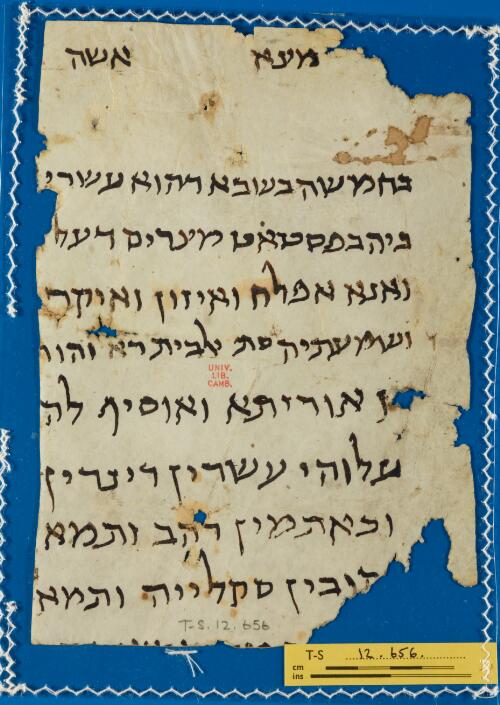 מצא אשה
בחמשה בשבא דהוא עשרי
ביה בפסטאט מצרים דעל
ואנא אפלח ואיזון ואיקר
ושמעת יה סת אלבית דא והות
אוריתא ואוסיף לה
עלוהי עשרין דינרין
ובאתמין דהב ותמא
סקלייה ותמא
UNIV.
LIB.
CAMB.
T-S. 12. 656
T-S 12.656.
cm
ins